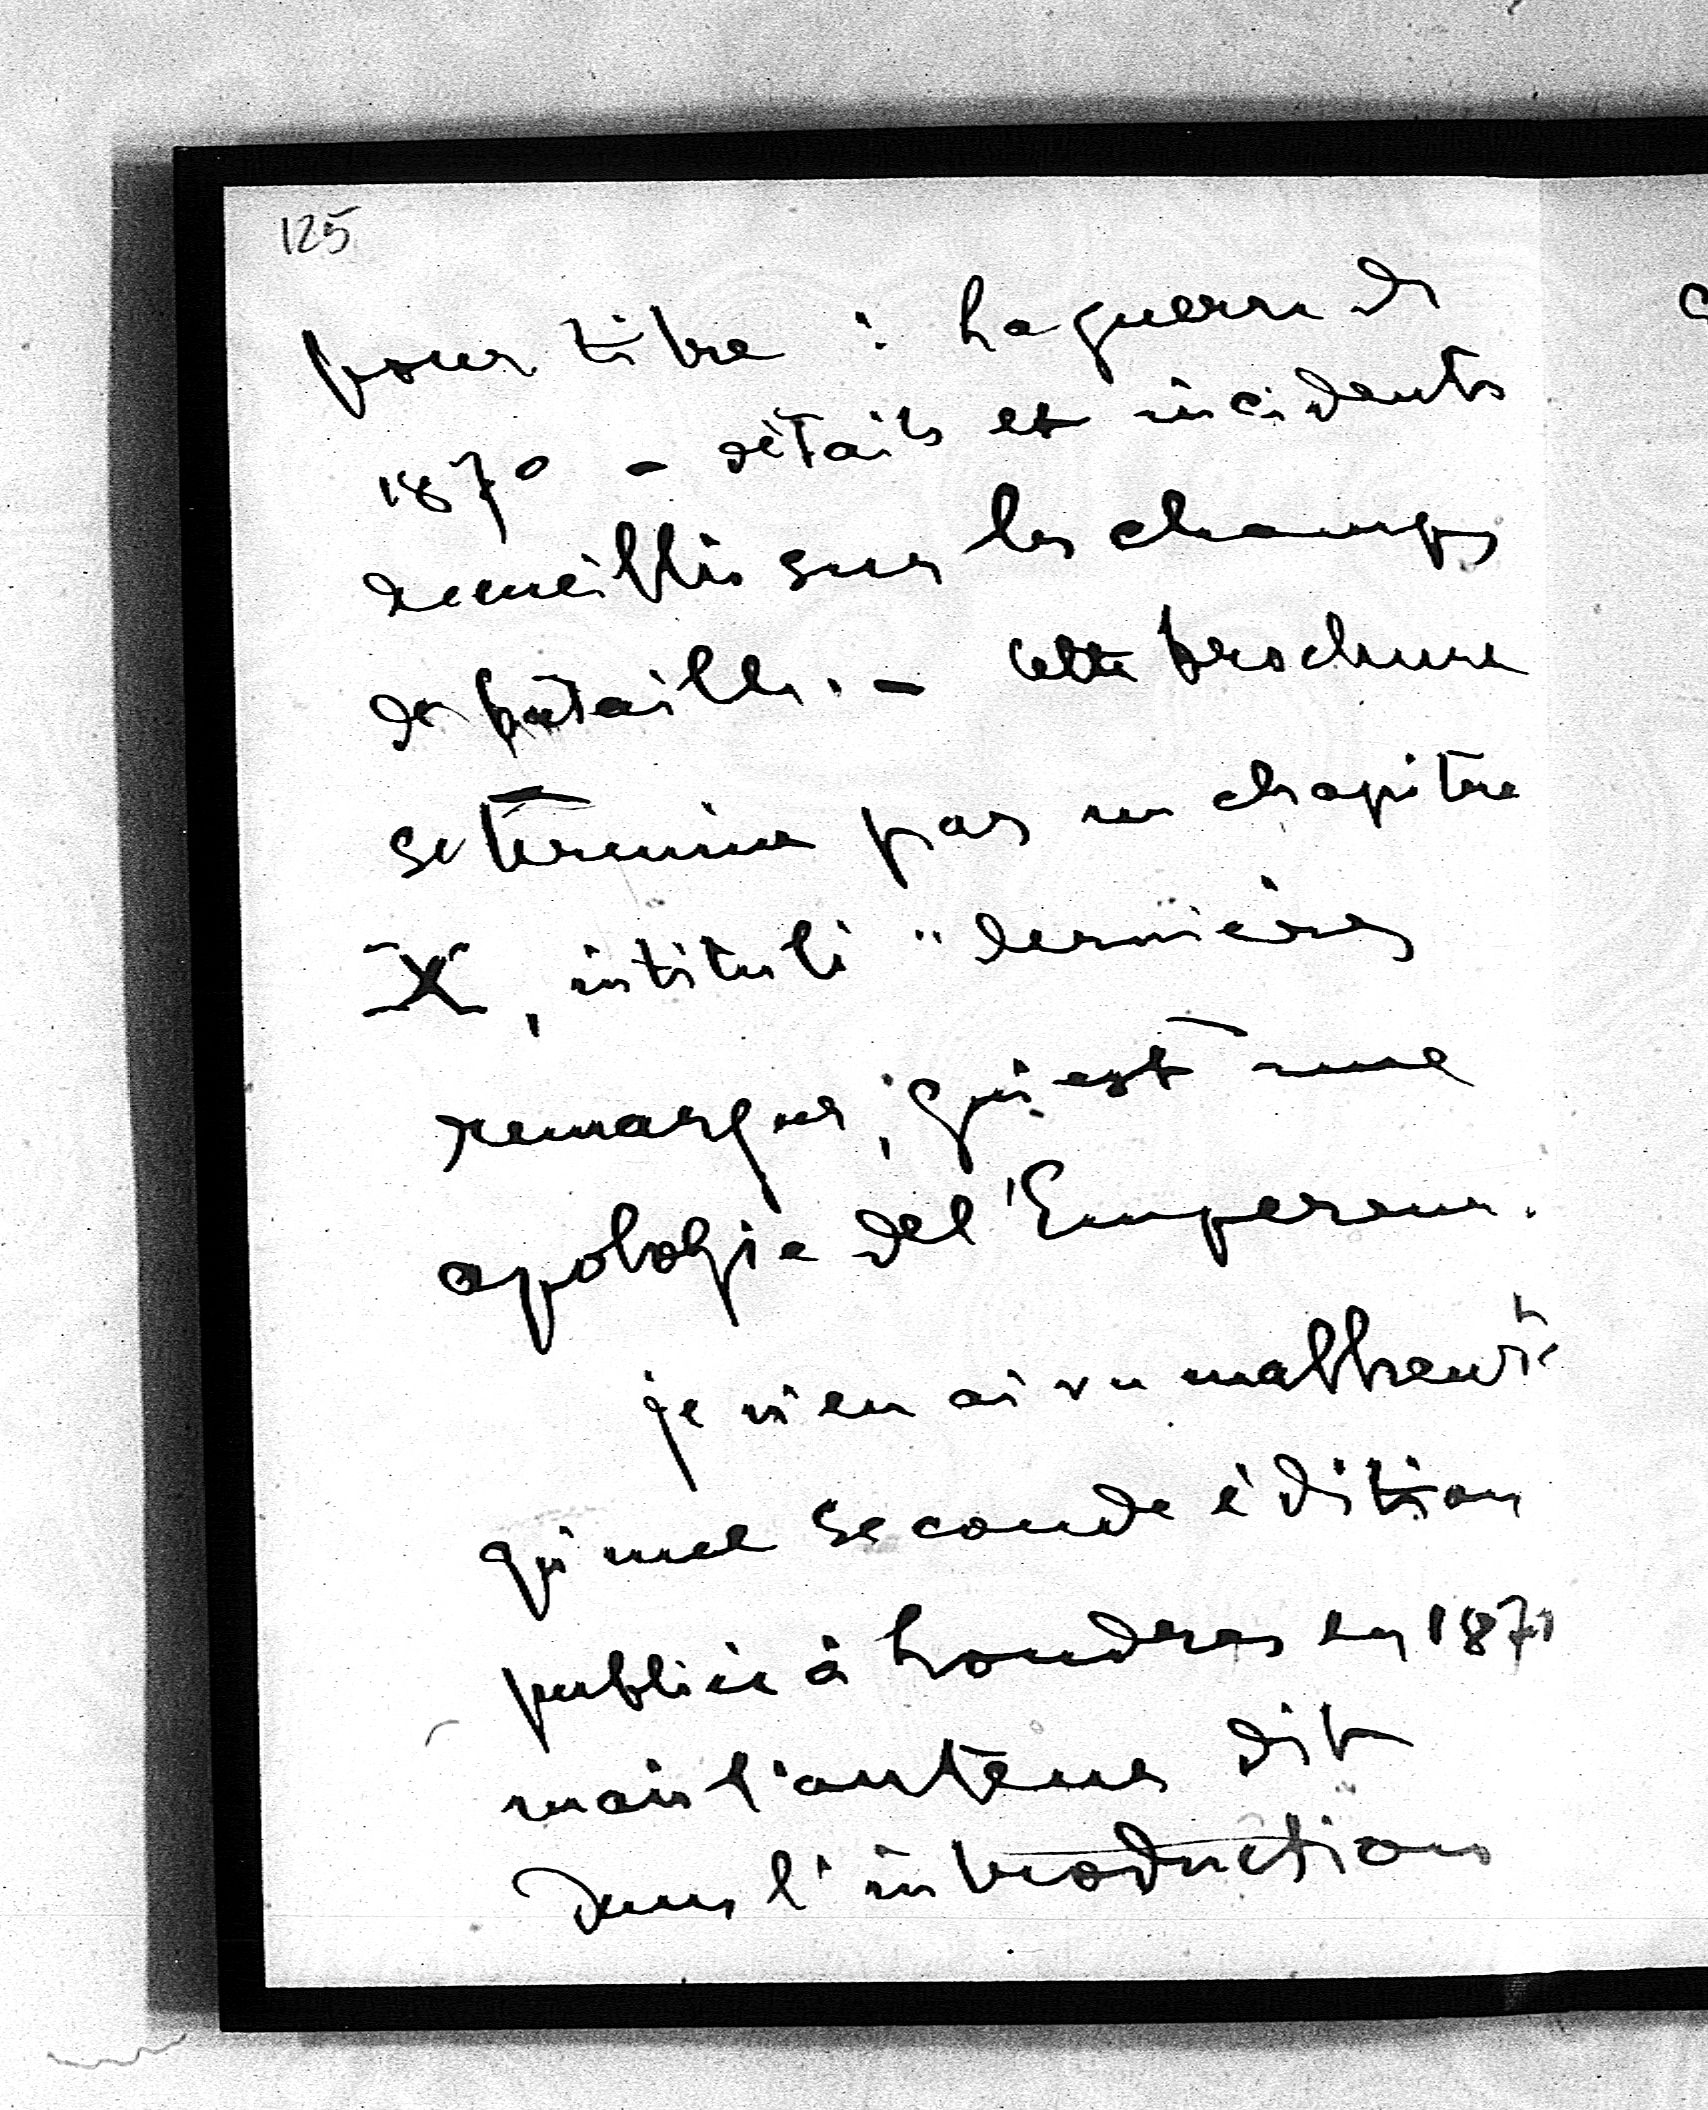 125
pour titre : La guerre de
1870 - détails et incidents
recueillis sur les champs
de bataille. - cette brochure
se termine par un chapitre
X, intitulé "dernières
remarques, qui est une
apologie de l'Empereur.
je n'en ai vu malheurt
qu'une seconde édition
publiée à Londres en 1871
mais l'auteur dit
dans l'introduction